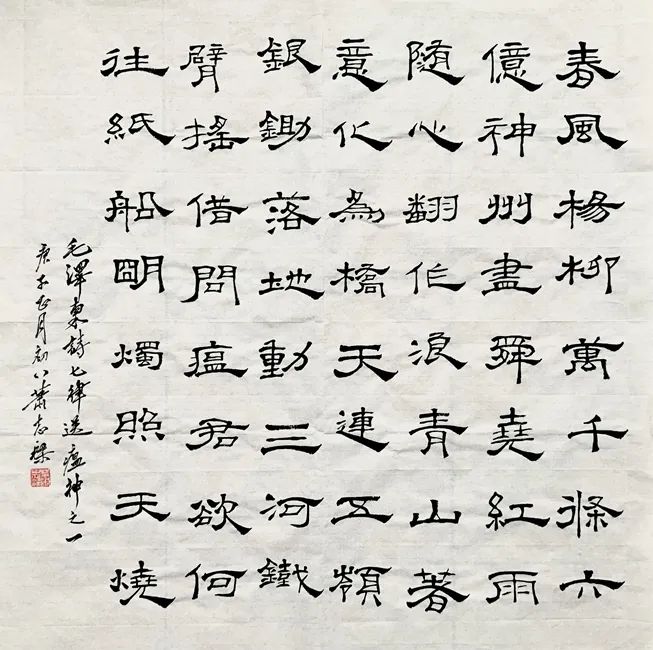 春風楊柳萬千條六
億神州盡舜堯紅雨
随心翻作浪青山著
意化為橋天連五嶺
銀鋤落地動三河鐵
臂搖借問瘟君欲何
往紙船明燭照天燒
毛澤東詩七律送瘟神之一
庚子正月初八蕭志樑